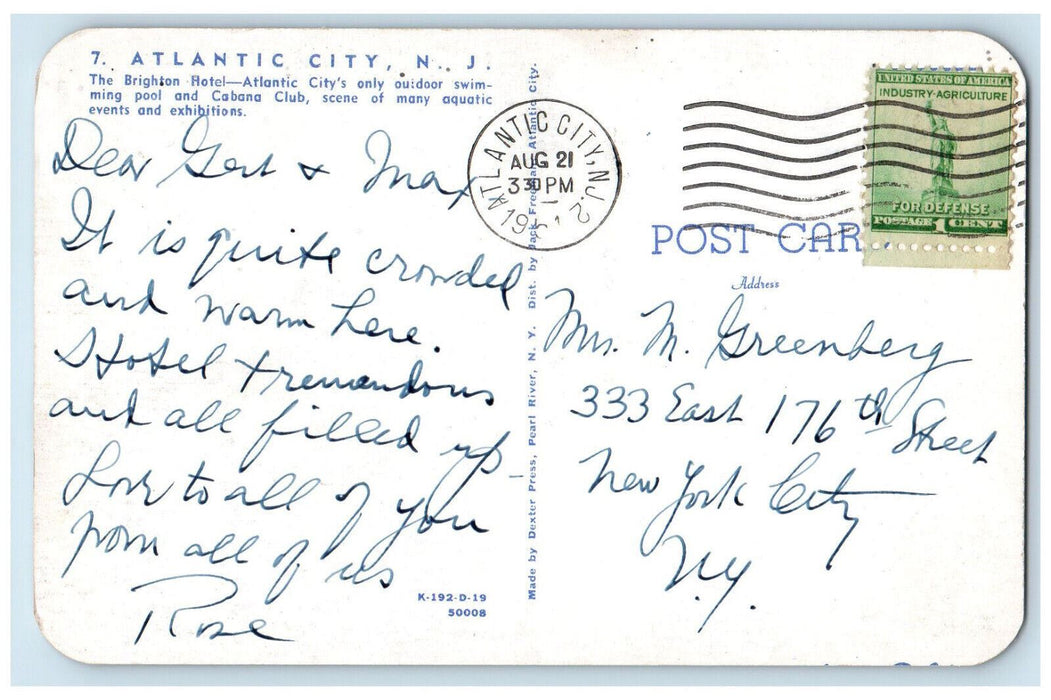 7. ATLANTIC CITY, N. J.
The Brighton Hotel—Atlantic City's only outdoor swim-
ming pool and Cabana Club, scene of many aquatic
events and exhibitions.
Dear Gert & Max
It is quite crowded
and warm here.
Hotel tremendous
and all filled up
Love to all of you
from all of us
Rose
K-192-D-19
50008
Made by Dexter Press, Pearl River, N. Y. Dist. by Jack Freeman, Atlantic City.
ATLANTIC CITY, N.J. 2
AUG 21
3 30 PM
UNITED STATES OF AMERICA
INDUSTRY-AGRICULTURE
FOR DEFENSE
POSTAGE 1 CENT
POST CAR
Address
Mrs. M. Greenberg
333 East 176th Street
New York City
N.Y.